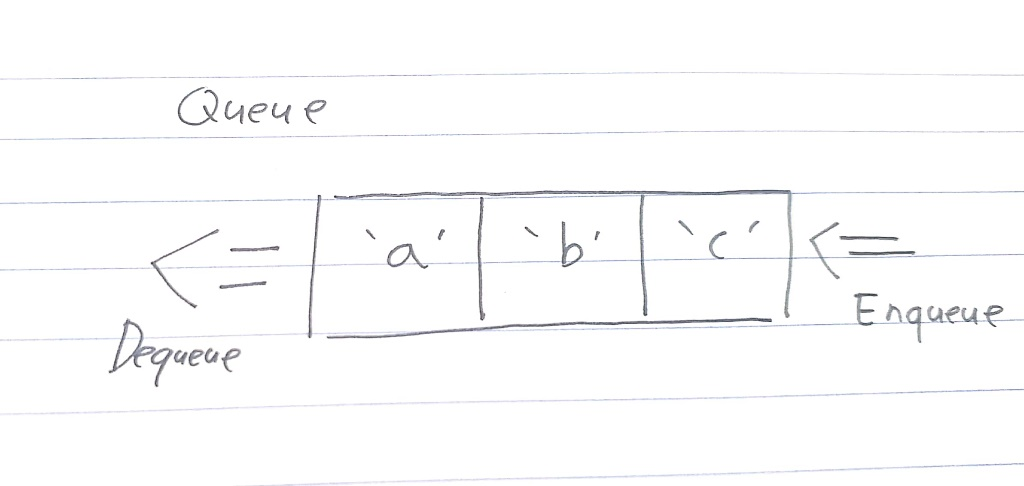 Queue
<= 'a' 'b' 'c' <=
Enqueue
Dequeue